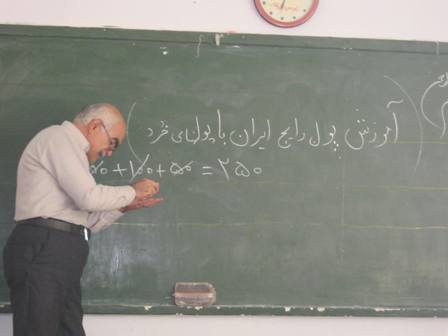 (آموزش پول رایج ایران با پولهای خرد)
+ ۱۰۰ + ۵۰ = ۲۵۰